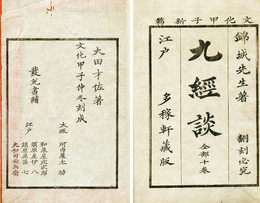 文化甲子新鐫
錦城先生著
翻刻必究
九經談
全部十卷
江戸
多稼軒藏版
大田才佐著
文化甲子仲冬刻成
發兌書鋪
大坂
河内屋太助
江戸
和泉屋庄次郎
須原屋伊八
須原屋孫七
大和田安兵衛